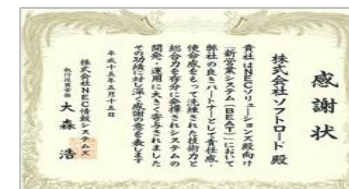 感謝状
株式会社ソフトロード殿
貴社はNECソリューションズ殿向け
「新営業システム(BEAT)」において
弊社の良きパートナーとして責任感・
使命感をもって洗練された技術力と
総合力を存分に発揮されシステムの
開発・運用に大きく寄与されました
その功績に対し深く感謝の意を表します
平成十五年五月十五日
株式会社NEC情報システムズ
執行役員常務
大森 浩